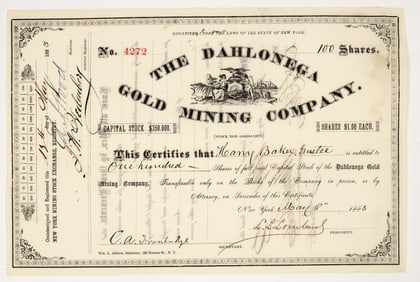 ORGANIZED UNDER THE LAWS OF THE STATE OF NEW YORK.
No. 4272
100 Shares.
THE DAHLONEGA
GOLD MINING COMPANY.
CAPITAL STOCK $250,000.
SHARES $1.00 EACH.
This Certifies that Harry Baker Trustee is entitled to
One hundred Shares of full paid Capital Stock of the Dahlonega Gold
Mining Company. Transferable only on the Books of the Company in person, or by
Attorney, on Surrender of this Certificate.
New York
PRESIDENT.
SECRETARY.
Countersigned and Registered this
NEW YORK MINING STOCK EXCHANGE REGISTRY
Registrar.